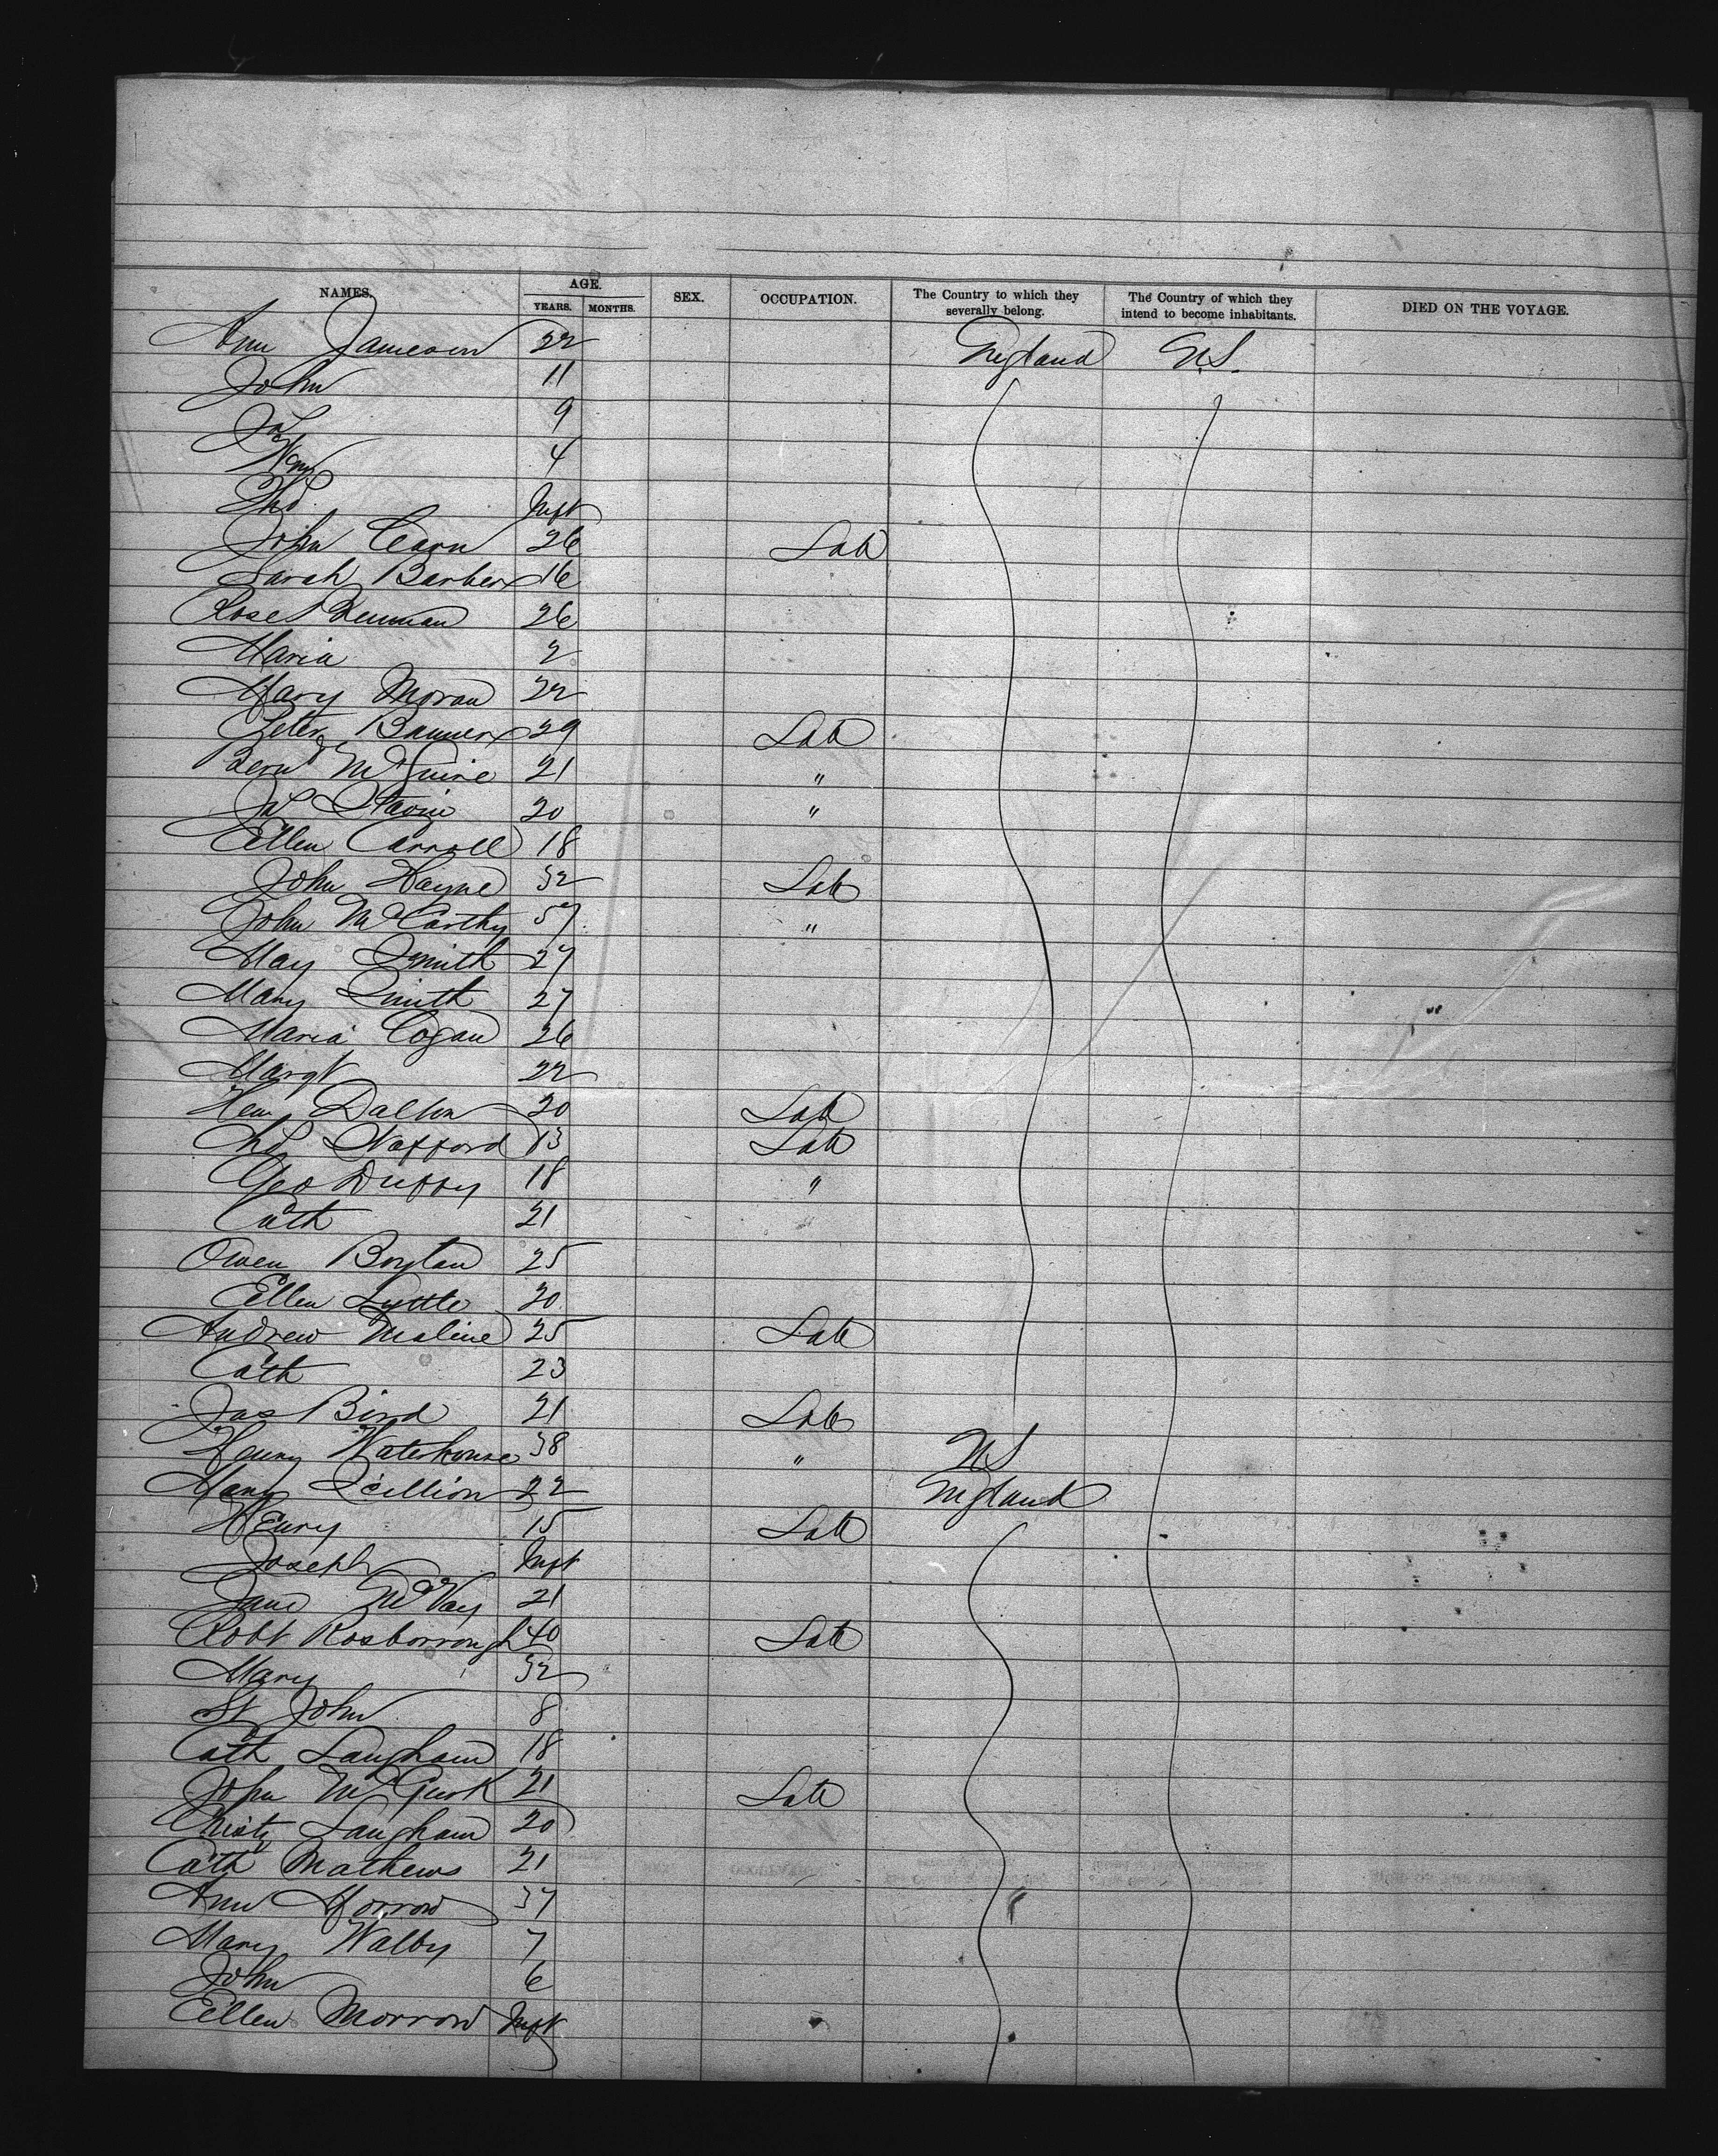 NAMES. AGE. SEX. OCCUPATION. The Country to which they severally belong. The Country of which they intend to become inhabitants. DIED ON THE VOYAGE.
YEARS. MONTHS.
Ann Jameson 22 England U.S.
John 11
Jas 9
Wm 4
Thos Inft
John Carn 26 Lab
Sarah Barber 16
Rose 26
Maria 2
Mary Moran 22
Peter Banner 29 Lab
Bernd McGuire 21 "
Jas 20 "
Ellen Carroll 18
John Hayne 32 Lab
John McCarthy 57 "
May Smith 27
Mary Smith 27
Maria Cogan 26
Margt 22
Hen Dalton 20 Lab
Thos Stafford 13 Lab
Geo Duffy 18 "
Cath 21
Owen Boylan 25
Ellen Lyttle 20
Andrew Maline 25 Lab
Cath 23
Jas Bird 21 Lab
Henry Waterhouse 38 " US
Mary 22 England
Henry 15 Lab
Joseph Inft
Jane McVay 21
Robt Rosborrough 40 Lab
Mary 32
St John 8
Cath Langham 18
John McGurk 21 Lab
Christy Langham 20
Cath Mathews 21
Ann Morrow 37
Mary Walby 7
John 6
Ellen Morrow Inft